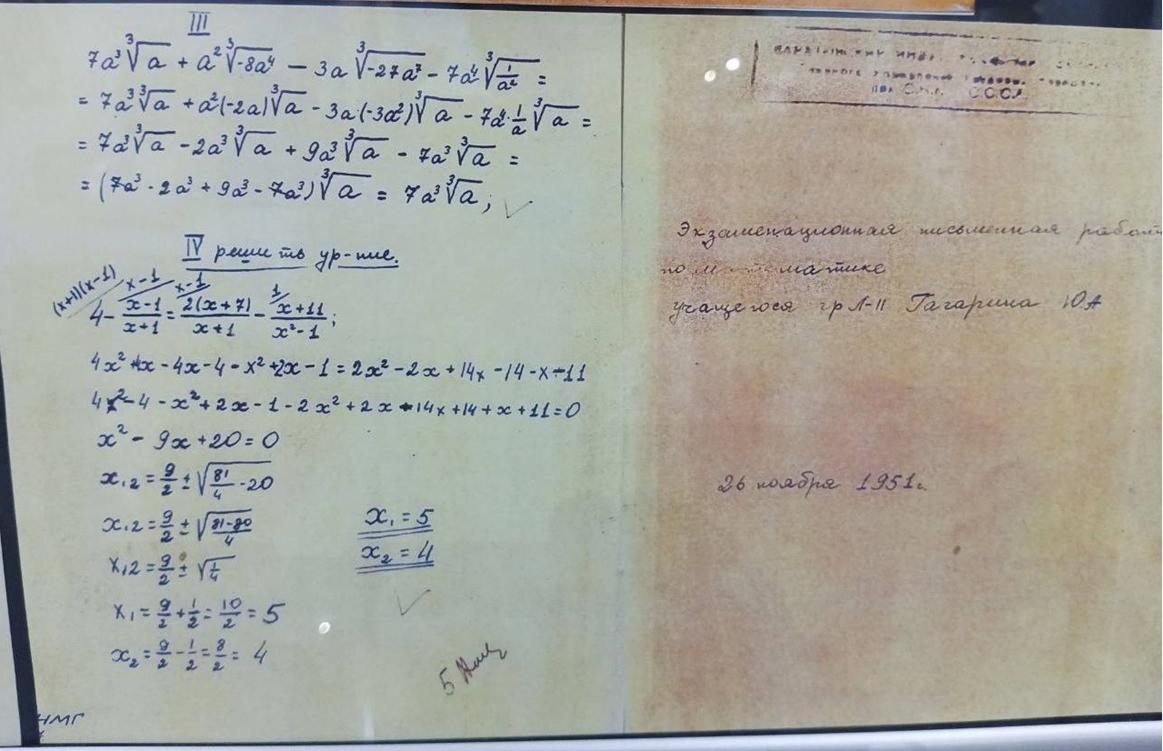 III
7a³ ∛a + a² ∛-8a⁴ — 3a ∛-27a⁷ - 7a⁴ ∛1/a² =
= 7a³ ∛a + a²(-2a) ∛a - 3a·(-3a²) ∛a - 7a⁴·1/a ∛a =
= 7a³ ∛a - 2a³ ∛a + 9a³ ∛a - 7a³ ∛a =
= (7a³ - 2a³ + 9a³ - 7a³) ∛a = 7a³ ∛a;
IV решить ур-ние.
(x+1)(x-1) x-1 x-1 1
4 - x-1/x+1 = 2(x+7)/x+1 - x+11/x²-1;
4x² + 4x - 4x - 4 - x² + 2x - 1 = 2x² - 2x + 14x - 14 - x - 11
4x² - 4 - x² + 2x - 1 - 2x² + 2x - 14x + 14 + x + 11 = 0
x² - 9x + 20 = 0
x₁₂ = 9/2 ± √81/4 - 20
x₁₂ = 9/2 ± √81-80/4
x₁₂ = 9/2 ± √1/4
x₁ = 9/2 + 1/2 = 10/2 = 5
x₂ = 9/2 - 1/2 = 8/2 = 4
x₁ = 5
x₂ = 4
5
НМГ
С.М. СССР
Экзаменационная письменная работ
по математике
учащегося гр Л-II Гагарина Ю А
26 ноября 1951г.